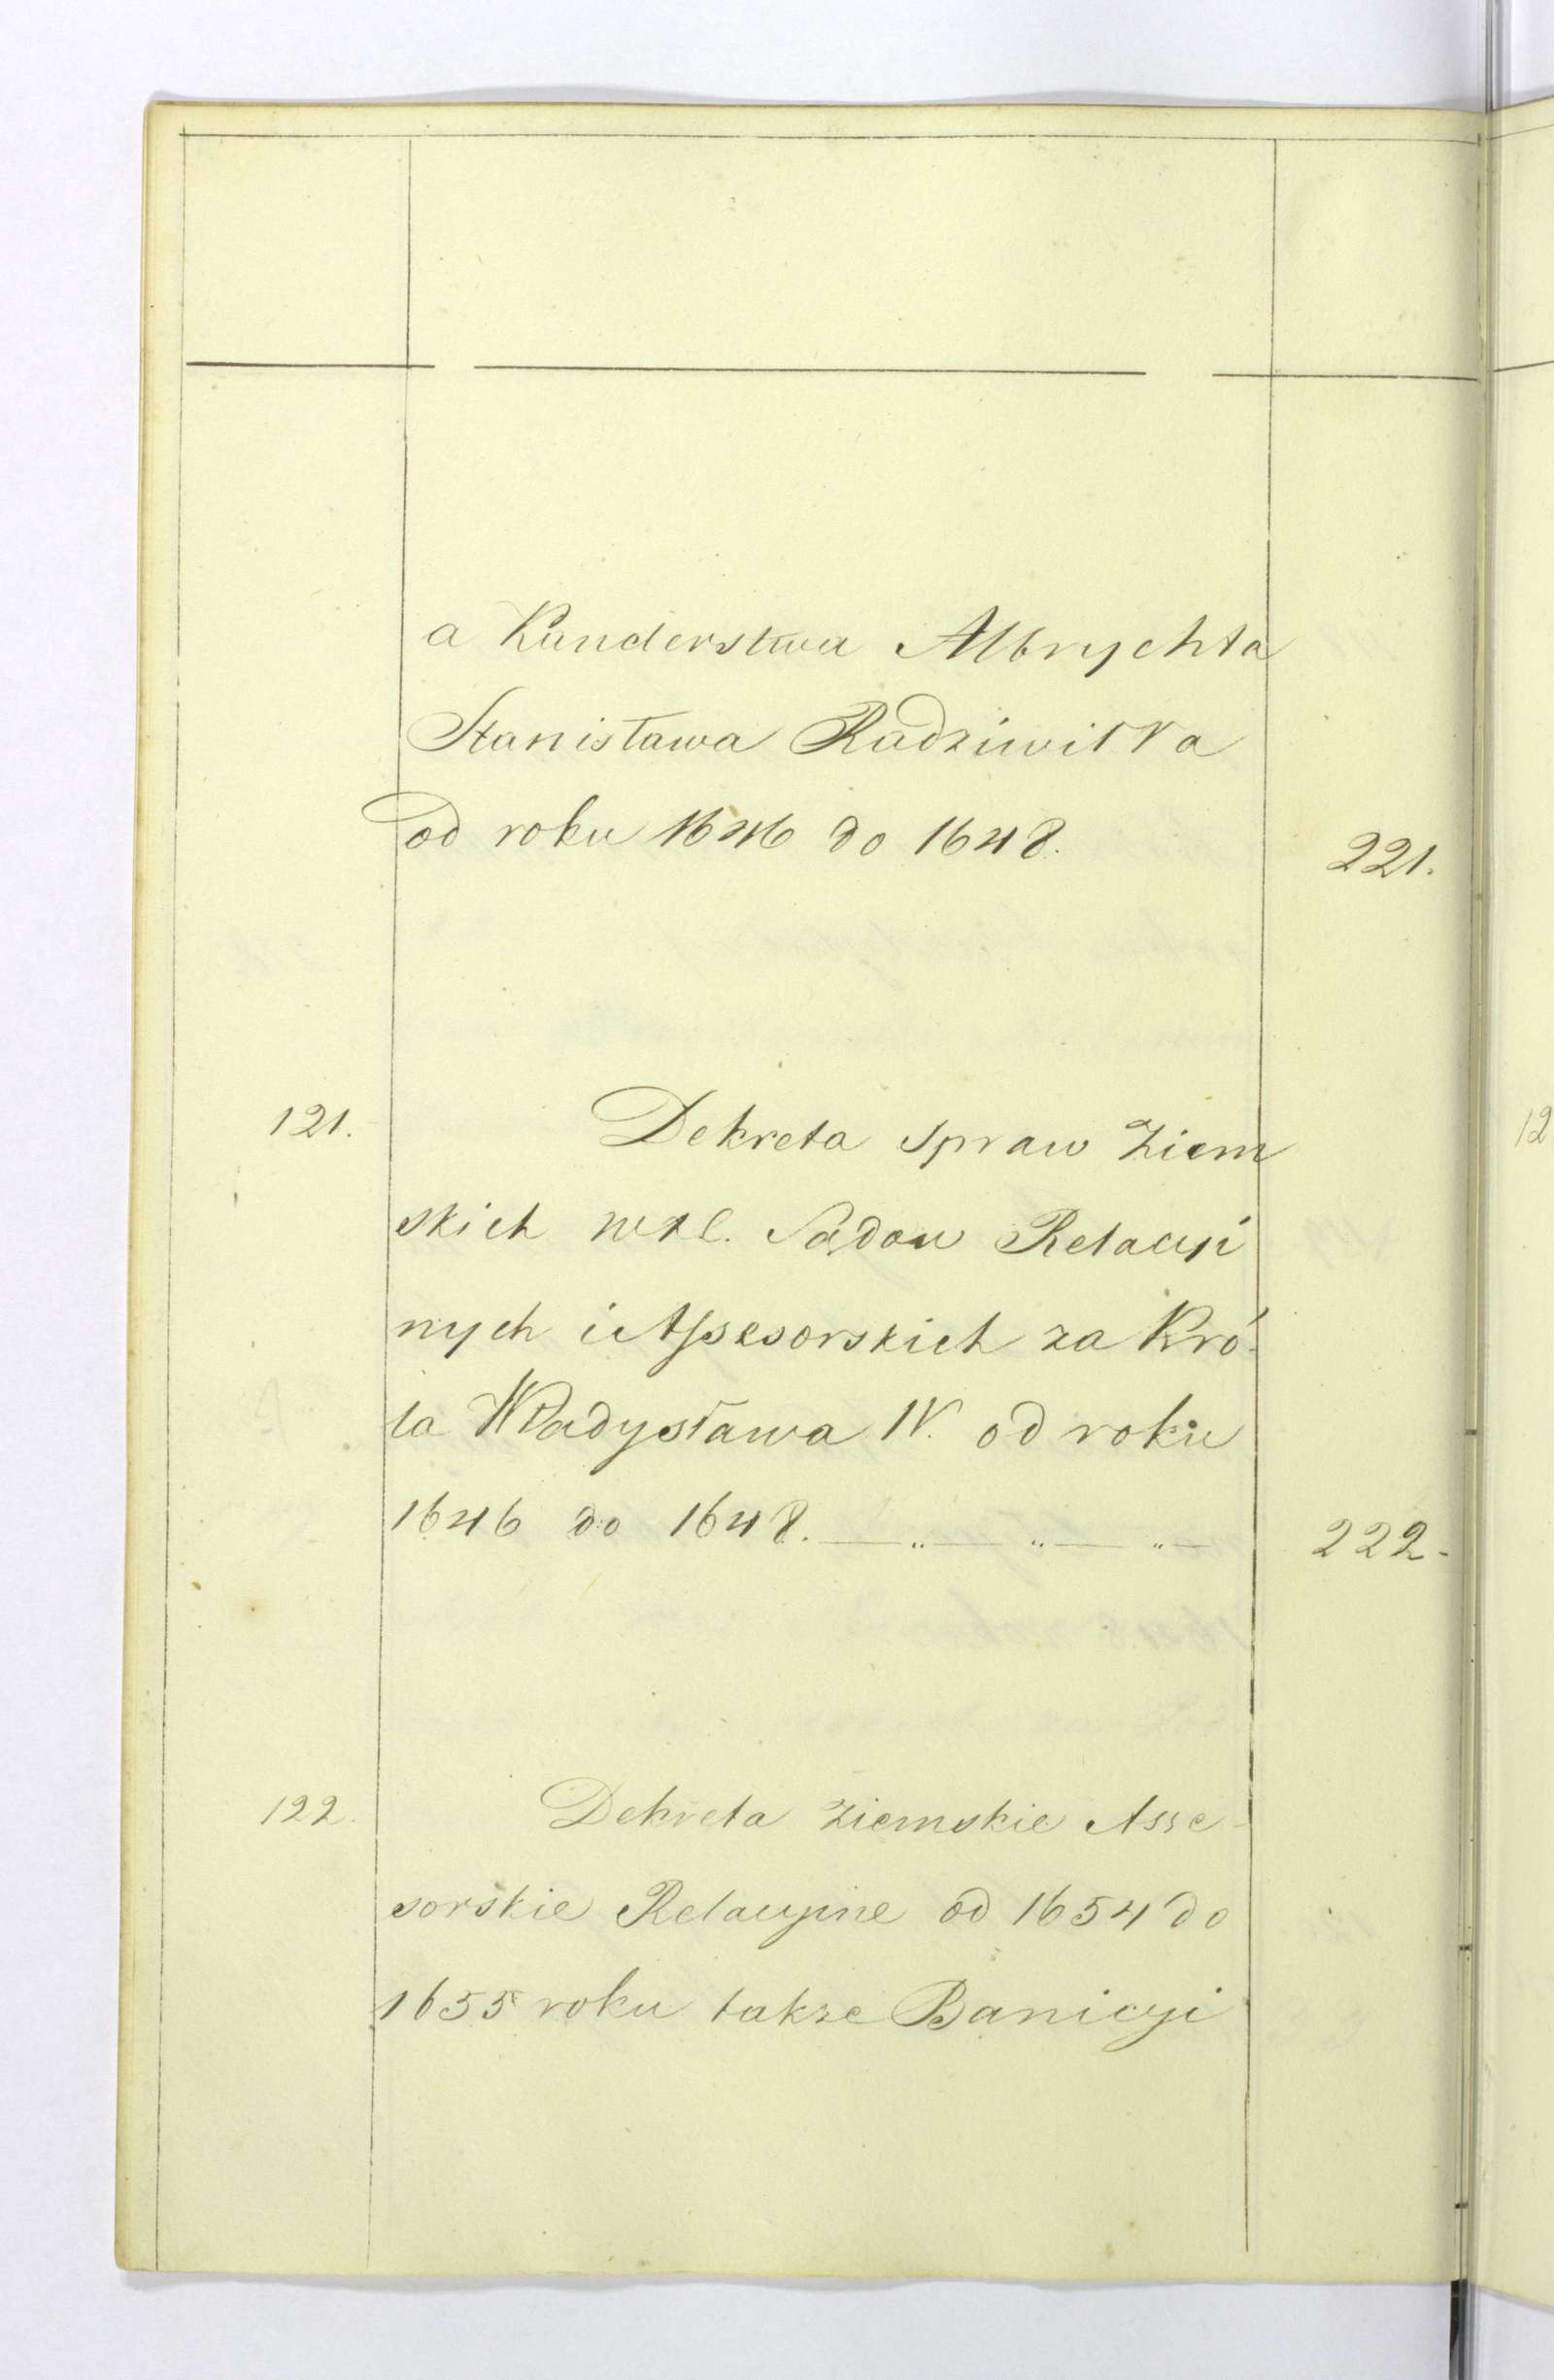 a Kanclerstwa Albrychta
Stanisława Radziwiłła
od roku 1646 do 1648. 221.
121. Dekreta Spraw Ziem
skich wXL. Sądow Relacyi
nych i Assesorskich za Kró-
la Władysława IV. od roku
1646 do 1648. — „ — „ — „ — 222.
122. Dekreta Ziemskie Asse-
sorskie Relacyjne od 1654 do
1655 roku takze Banicyi
12